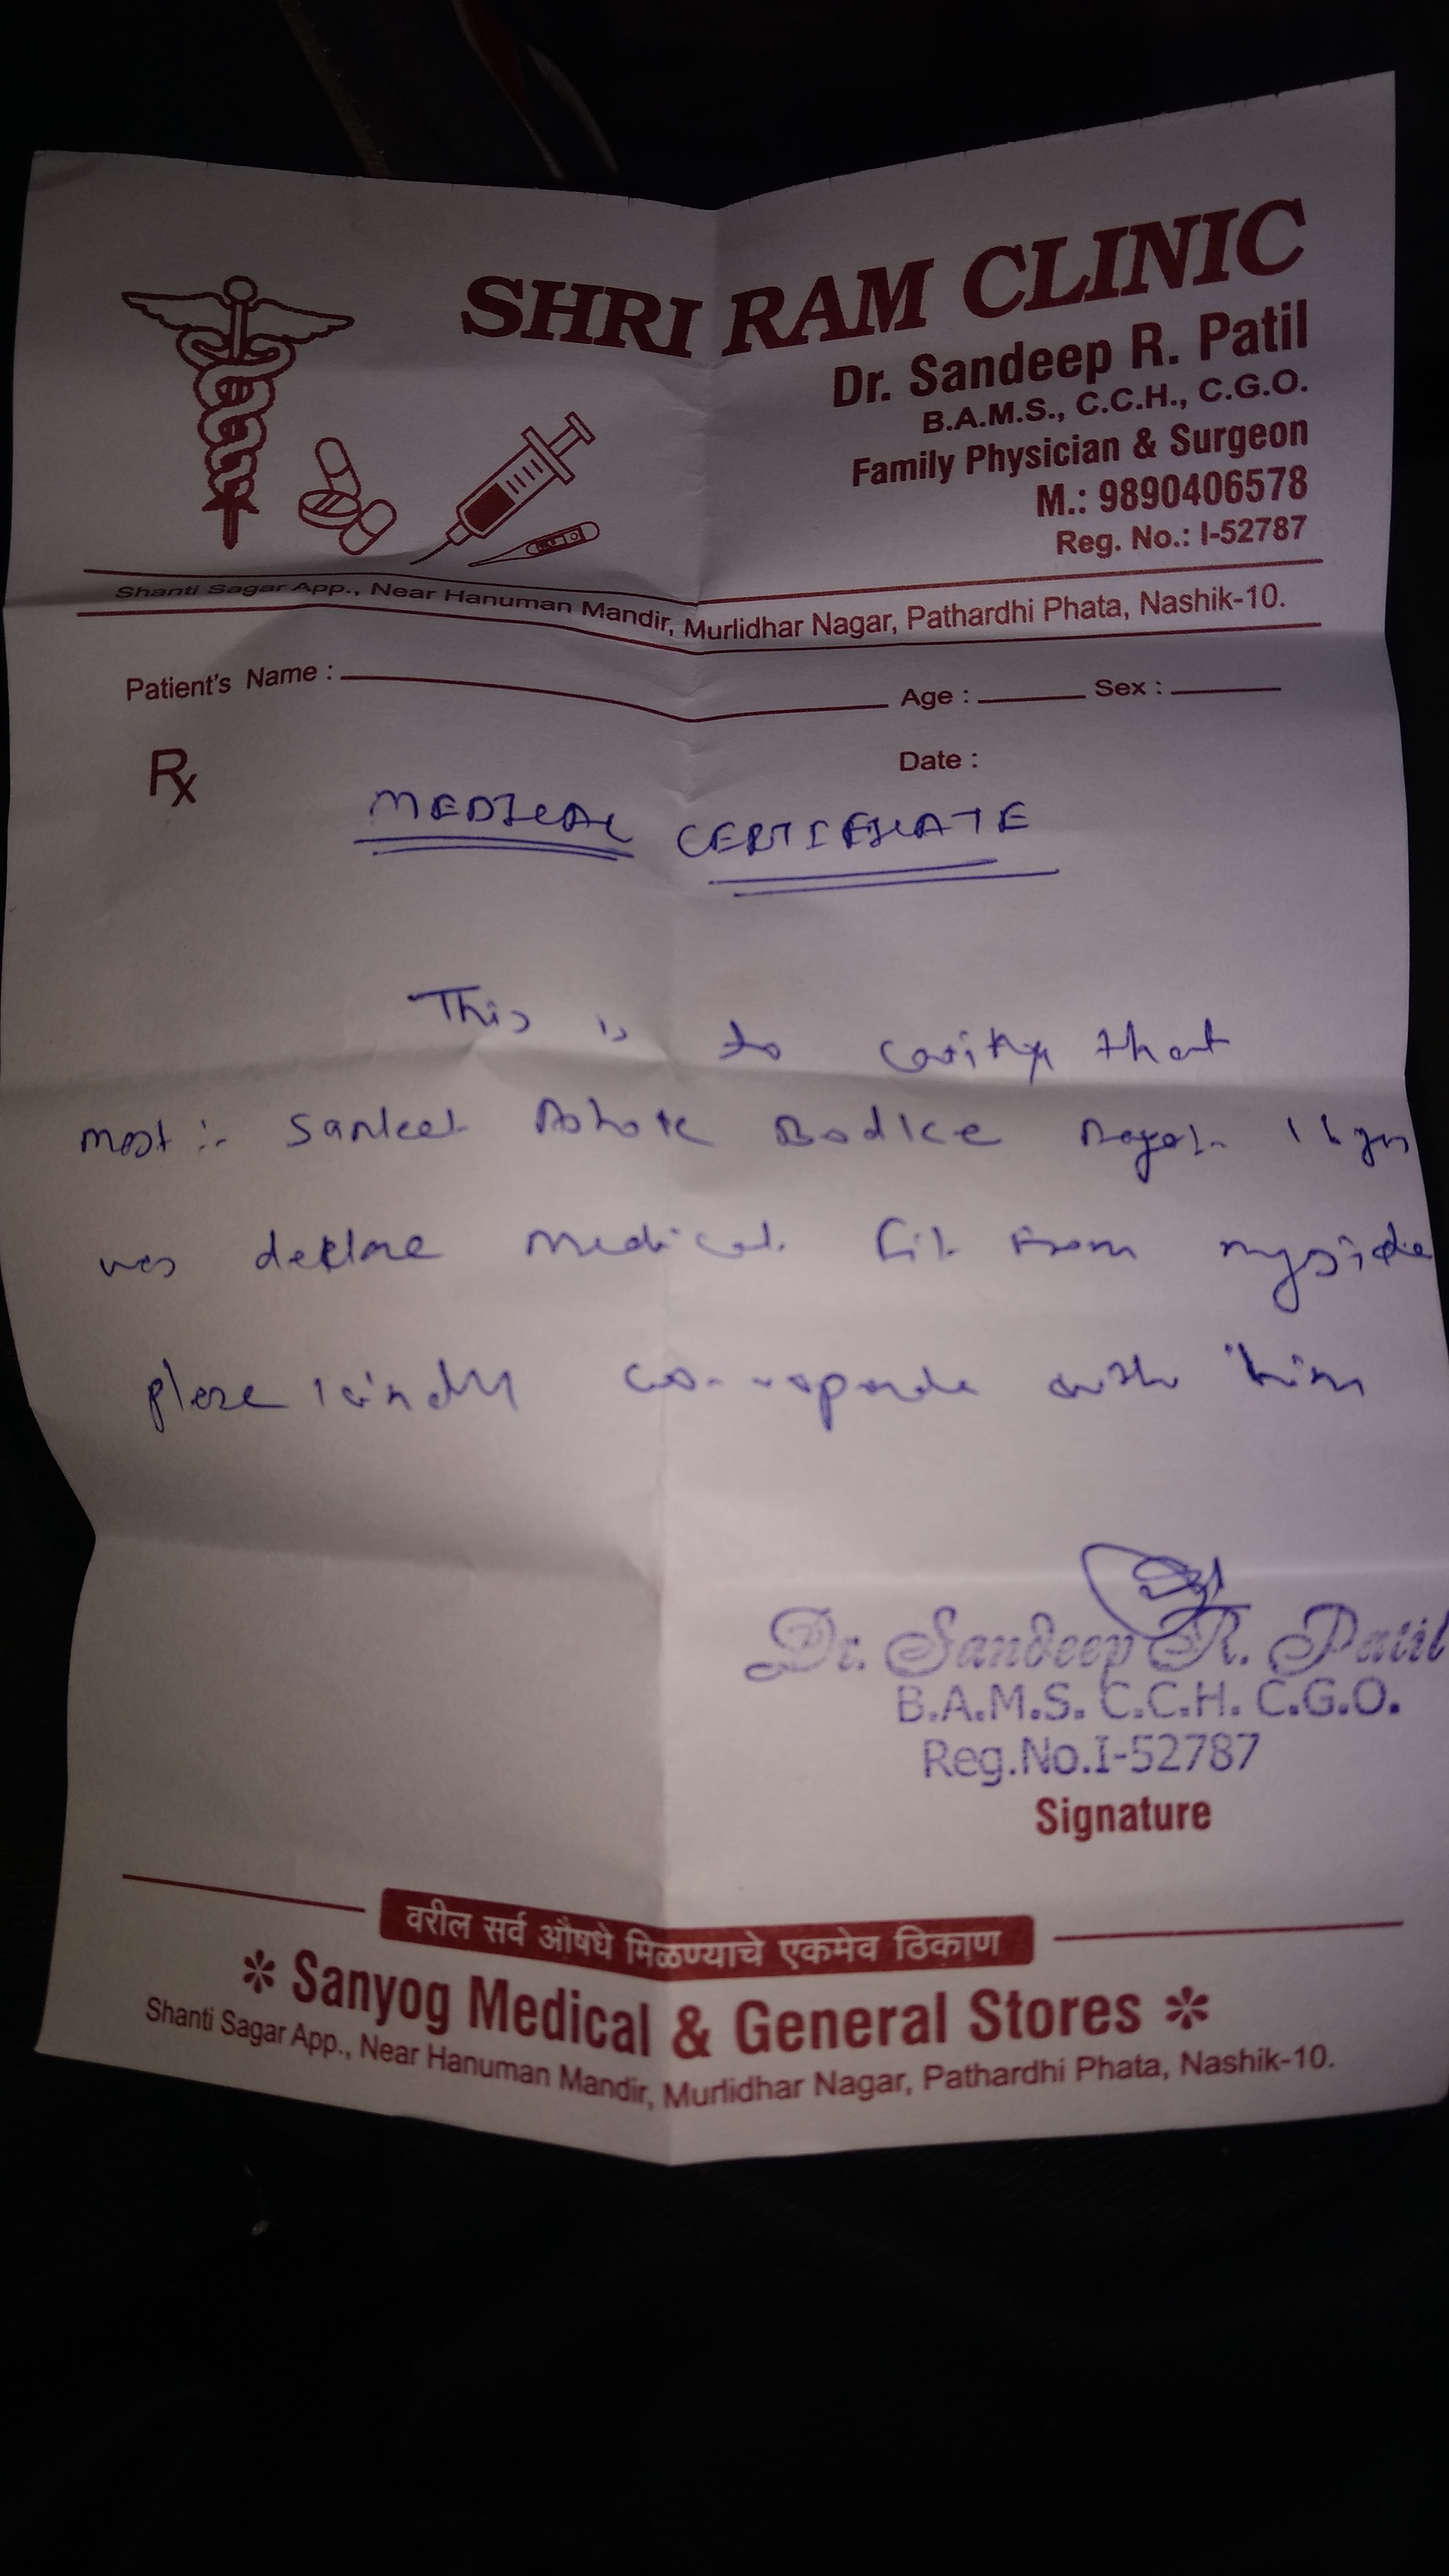 SHRI RAM CLINIC
Dr. Sandeep R. Patil
B.A.M.S., C.C.H., C.G.O.
Family Physician & Surgeon
M.: 9890406578
Reg. No.: I-52787
Shanti Sagar App., Near Hanuman Mandir, Murlidhar Nagar, Pathardhi Phata, Nashik-10.
Patient's Name : Age : Sex :
Rx Date :
MEDICAL CERTIFICATE
This is to that
mast :- Sanket Ashok Bodke 16 yrs
was declare medical fit from myside
please kindly with him
Dr. Sandeep R. Patil
B.A.M.S. C.C.H. C.G.O.
Reg.No.I-52787
Signature
वरील सर्व औषधे मिळण्याचे एकमेव ठिकाण
* Sanyog Medical & General Stores *
Shanti Sagar App., Near Hanuman Mandir, Murlidhar Nagar, Pathardhi Phata, Nashik-10.